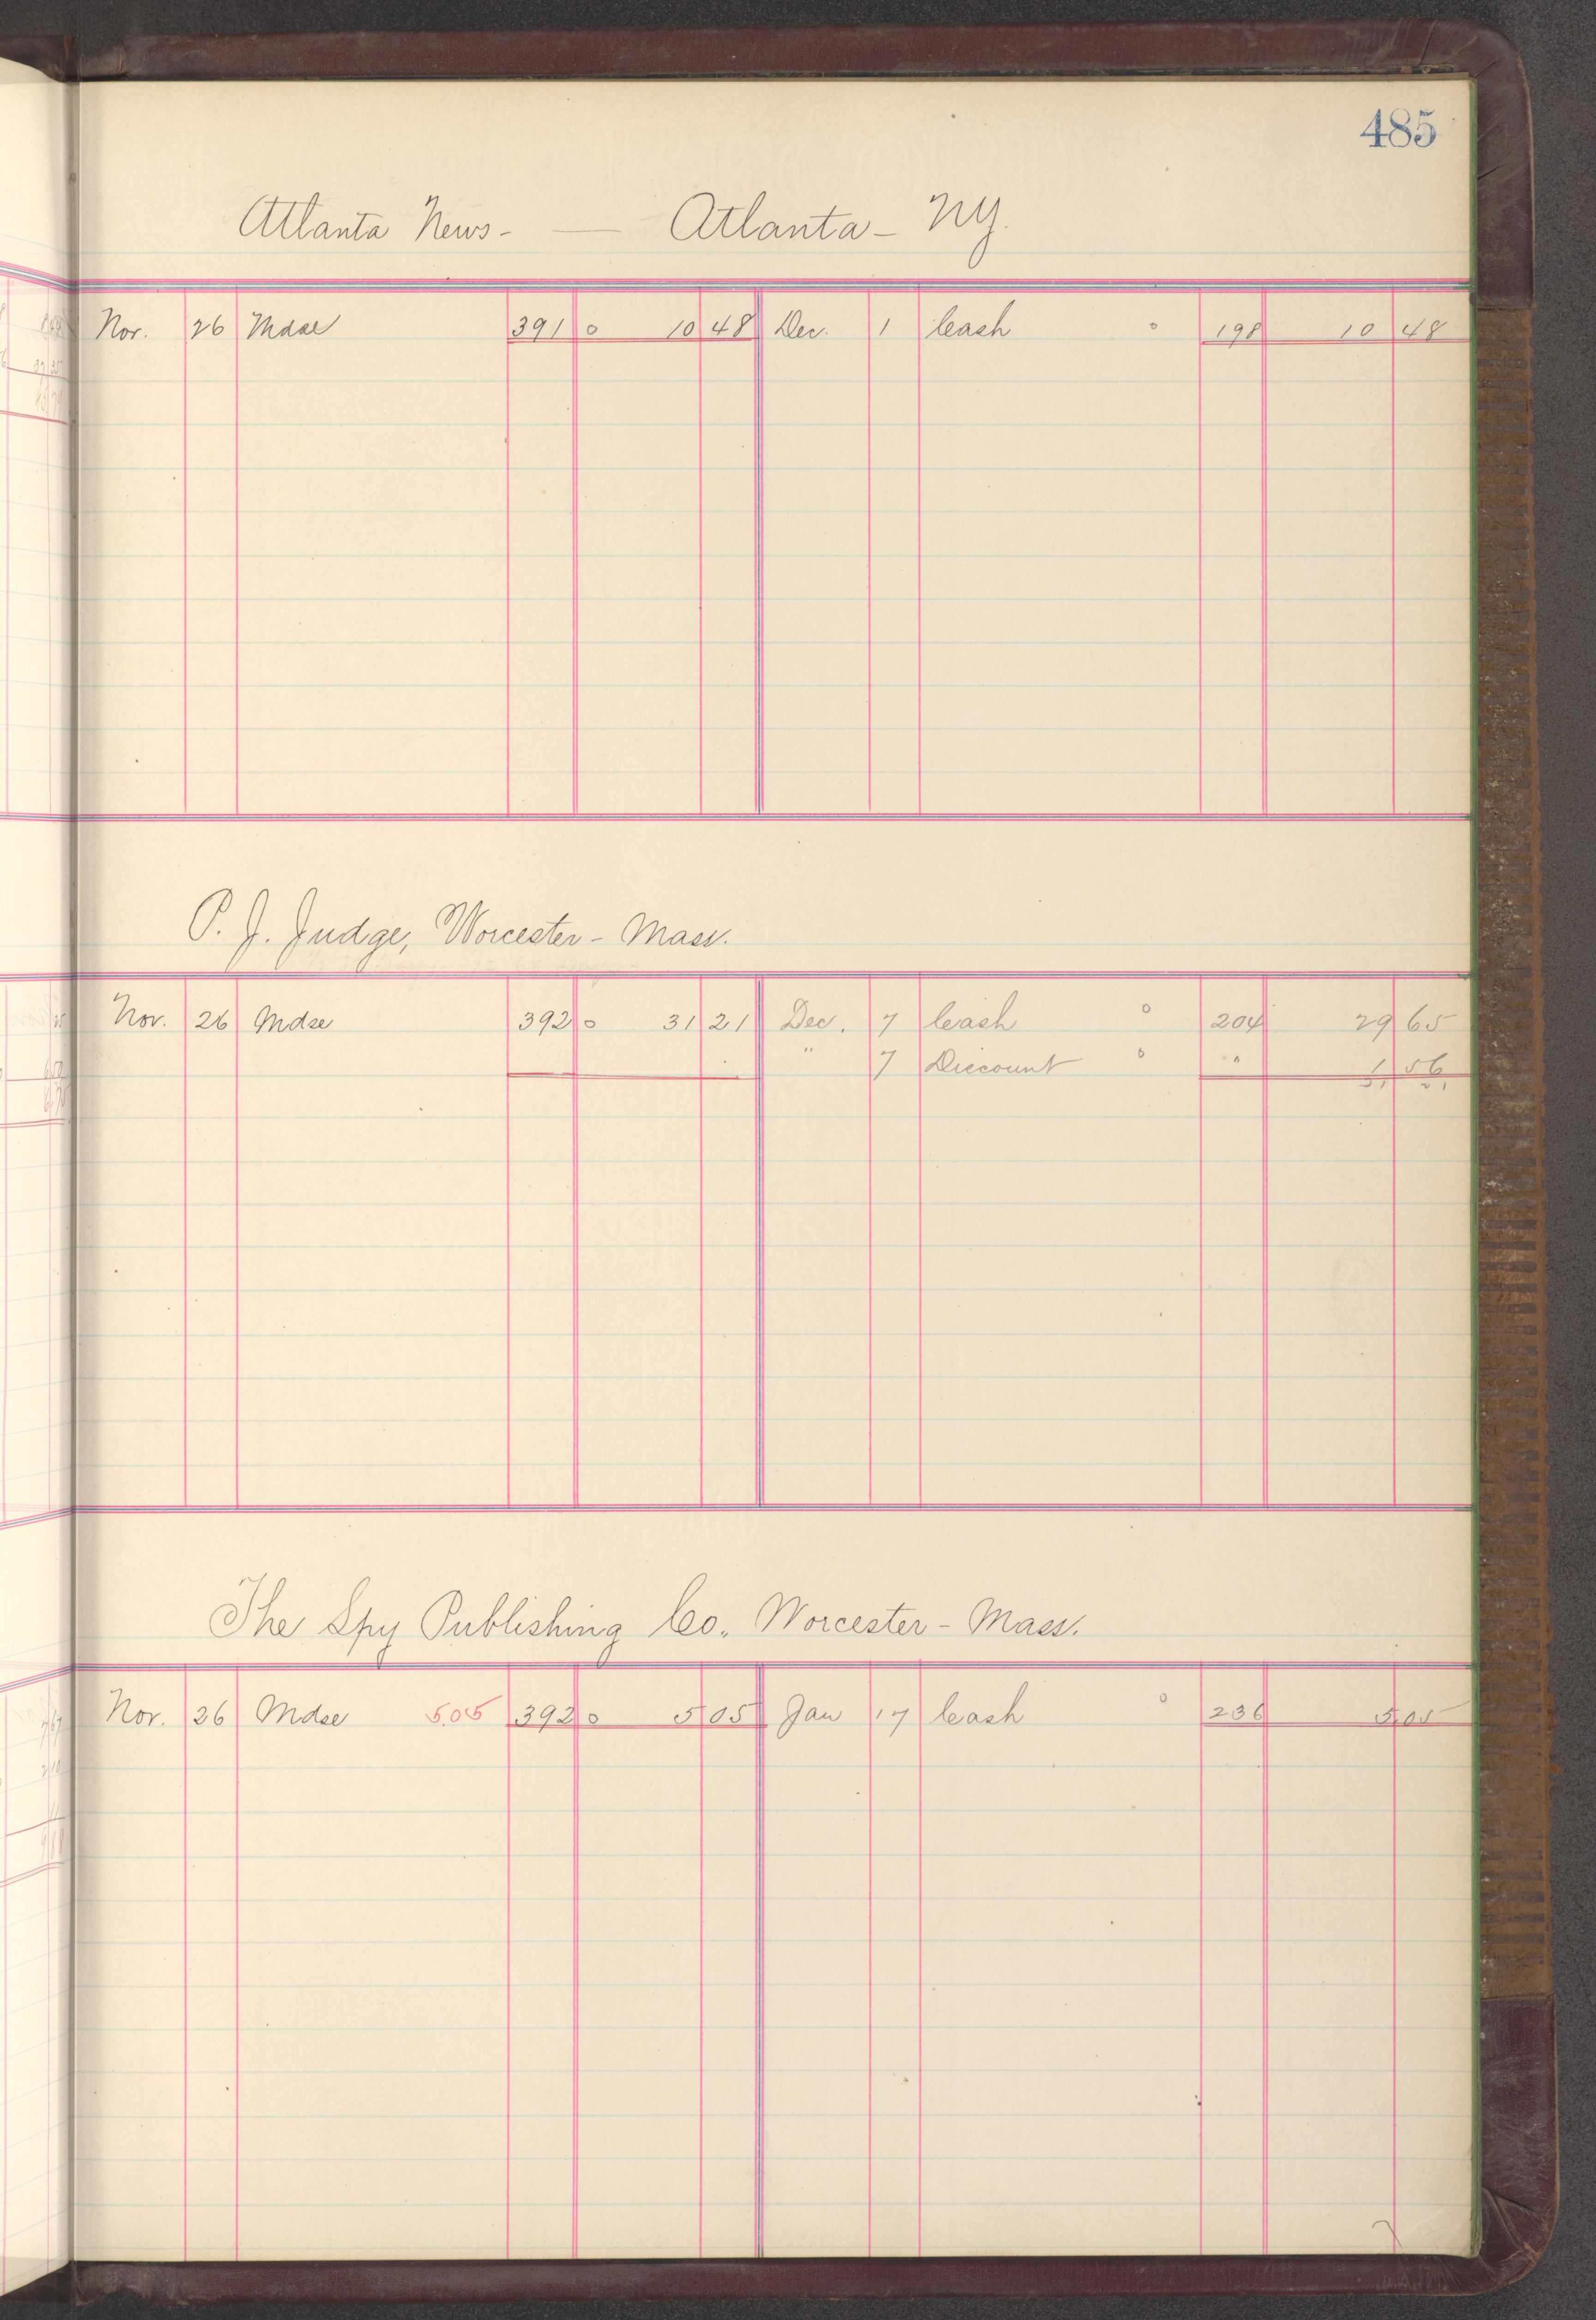 485
Atlanta News - — Atlanta - NY.
Nor. 26 Mdse 391 0 10 48 Dec. 1 Cash 0 198 10 48
P. J. Judge, Worcester - Mass.
Nov. 26 Mdse 392 0 31 21 Dec. 7 Cash 0 204 29 65
" 7 Discount 0 " 1 56
31 21
The Spy Publishing Co., Worcester - Mass.
Nov. 26 Mdse 5.05 392 0 5 05 Jan 17 Cash 0 236 5.05